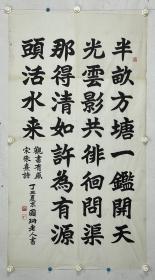 半畝方塘一鑑開天
光雲影共徘徊問渠
那得清如許為有源
頭活水来
觀書有感
宋朱熹詩
丁亥夏 國 老人書